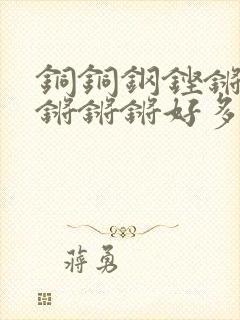 銅銅鋼鏗鏘
鏘鏘鏘好多
蔣勇